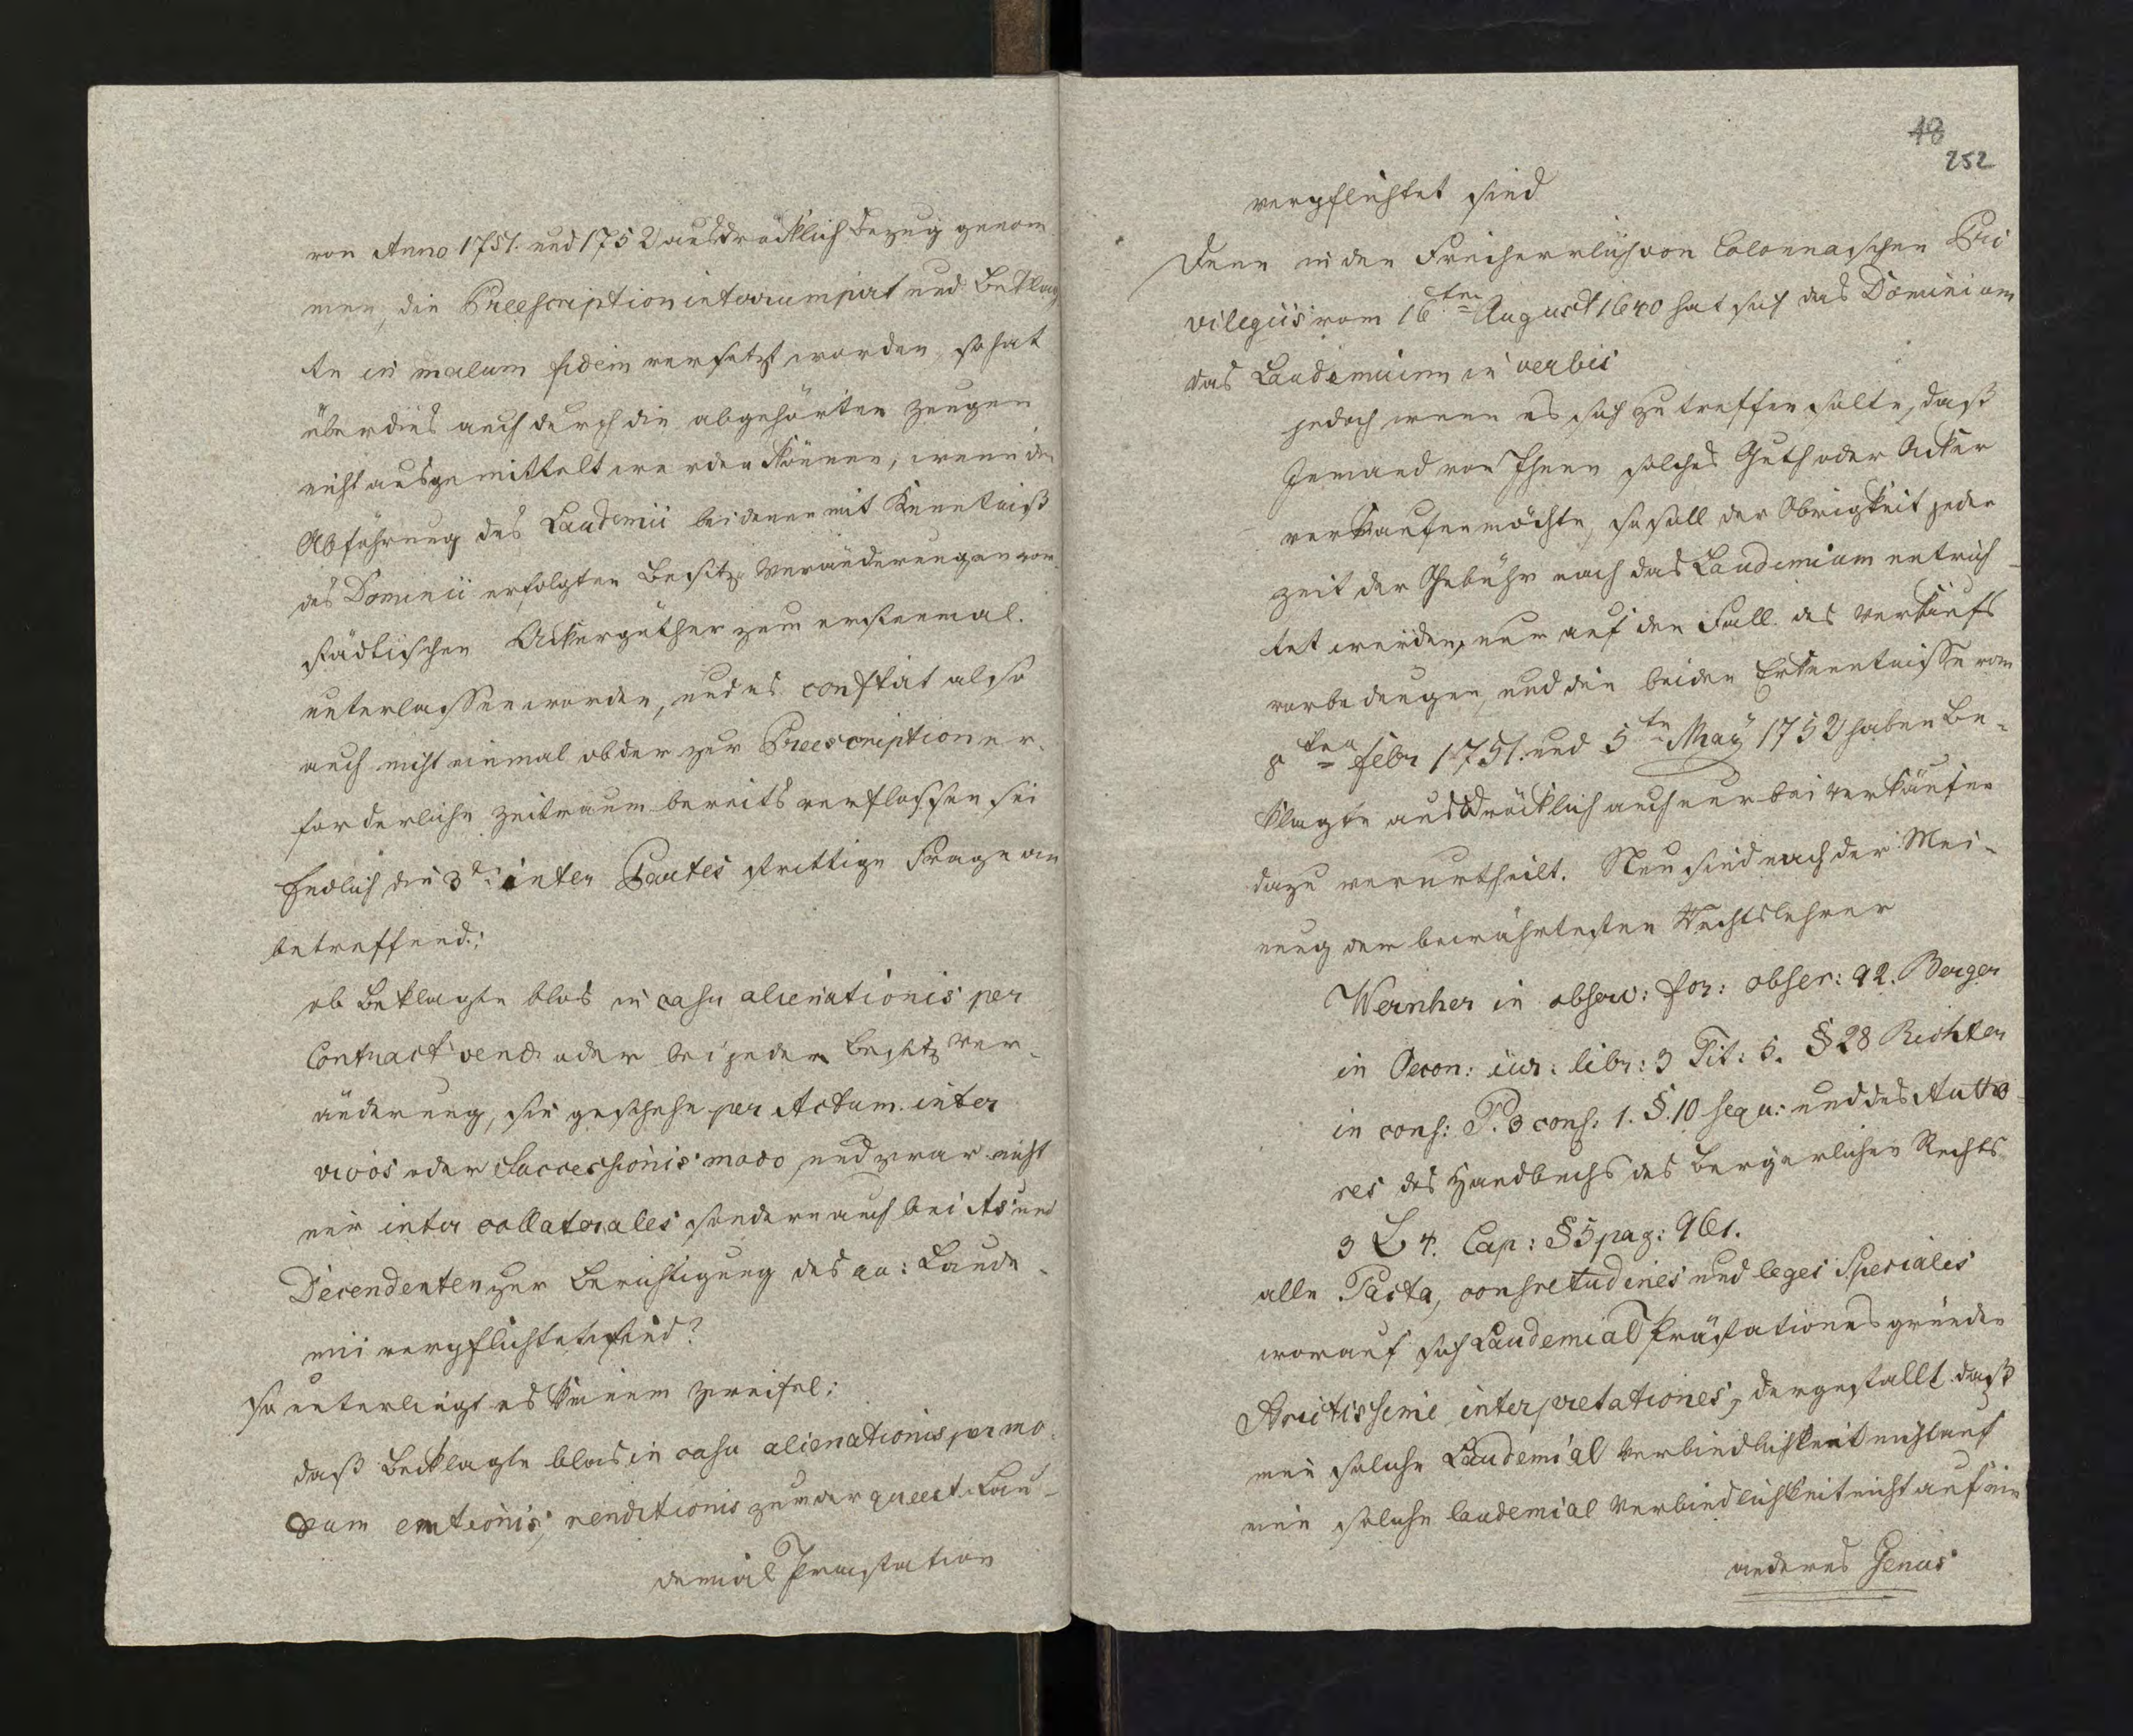 von Anno 1751. und 1752 ausdrücklich Bezug genom
men, die Preescription interrumpirt und Beklag
te in malam fidem versetzt worden, so hat
überdies auch durch die abgehörten Zeugen
nicht ausgemittelt werden können, wenn die
Abführung des Laudemii bei denen mit Kenntniß
des Dominii erfolgten Besitz Veränderungen vor
städtischen Ackergüther zum erstenmal.
unterlassen worden, und es constirt also
auch nicht einmal ob der zur Preescription er-
forderliche Zeitraum bereits verflossen sei
Endlich die 3te inter Partes strittige Frage an
betreffend:
ob Beklagte blos in casu alienationis per
Contract vend: oder bei jeder Besitz Ver-
änderung, sie geschehe per Actum inter
vivos oder Successionis modo, und zwar nicht
nur inter collaterales sondern auch bei As und
Decendenten zur Berichtigung des qu: Laude-
mii verpflichtet sind?
so unterliegt es keinem Zweifel:
daß Beklagte blos in casu alienationis per mo-
dum emtionis, venditionis zu der queest. Lau-
demial Praestation
48
252
verpflichtet sind
Denn in den Freiherrlich von Colonnaschen Pri
vilegiis vom 16ten August 1640 hat sich das Dominium
das Laudemium in verbis
jedoch wenn es sich zutreffen solte, daß
Jemand von Ihnen solches Guth oder Acker
verkaufen möchte, so soll der Obrigkeit jeder
zeit der Gebühr nach das Laudemium entrich-
tet werden, nur auf den Fall des Verkaufs
vorbedungen, und die beiden Erkenntnisse vom
8ten Febr 1751. und 5ten May 1752 haben Be-
klagte ausdrücklich auch nur bei Verkäufen
dazu verurtheilt. Nun sind nach der Mei-
nung der bewährtesten Rechtslehrer
Wernher in observ: for: obser: 92. Berger
in Oecon: iur: libr: 3 Tit: 5. § 28 Richter
in cons: P. 3 cons: 1. §. 10 sequ: und des Autho-
res des Handbuchs des Bergerlichen Rechts
3 L 4. Cap: § 5 pag: 961.
alle Pacta, consvetudines und leges Speciales
worauf sich Laudemial Prästationes gründen
strictissimi interpretationes, dergestallt daß
eine solche Laudemial Verbindlichkeit nicht auf
eine solche laudemial Verbindlichkeit nicht auf ein
anderes Genus